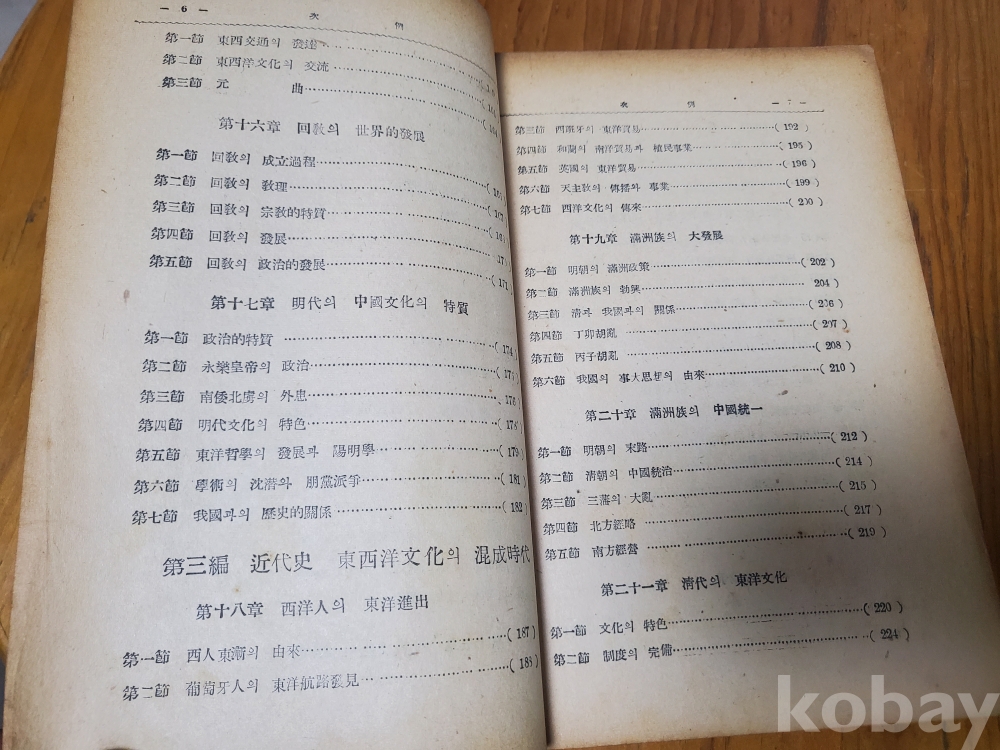 — 6 —
次 例
第一節 東西交通의 發達
第二節 東西洋文化의 交流
第三節 元 曲
第十六章 回敎의 世界的發展
第一節 回敎의 成立過程
第二節 回敎의 敎理
第三節 回敎의 宗敎的特質
第四節 回敎의 發展
第五節 回敎의 政治的發展 171
第十七章 明代의 中國文化의 特質
第一節 政治的特質 (174
第二節 永樂皇帝의 政治
第三節 南倭北虜의 外患 176
第四節 明代文化의 特色
第五節 東洋哲學의 發展과 陽明學 179
第六節 學術의 沈潜와 朋黨派爭 (181
第七節 我國과의 歷史的關係 (182)
第三編 近代史 東西洋文化의 混成時代
第十八章 西洋人의 東洋進出
第一節 西人東漸의 由來 (187)
第二節 葡萄牙人의 東洋航路發見 (188)
次 例 — 7 —
第三節 西班牙의 東洋貿易 (192)
第四節 和蘭의 南洋貿易과 植民事業 (195)
第五節 英國의 東洋貿易 (196)
第六節 天主敎의 傳播와 事業 (199)
第七節 西洋文化의 傳來 (200)
第十九章 滿洲族의 大發展
第一節 明朝의 滿洲政策 (202)
第二節 滿洲族의 勃興 204)
第三節 淸과 我國과의 關係 (206)
第四節 丁卯胡亂 (207)
第五節 丙子胡亂 (208)
第六節 我國의 事大思想의 由來 (210)
第二十章 滿洲族의 中國統一
第一節 明朝의 末路 (212)
第二節 淸朝의 中國統治 (214)
第三節 三藩의 大亂 (215)
第四節 北方經略 (217)
第五節 南方經營 (219)
第二十一章 淸代의 東洋文化
第一節 文化의 特色 (220)
第二節 制度의 完備 (224)
kobay